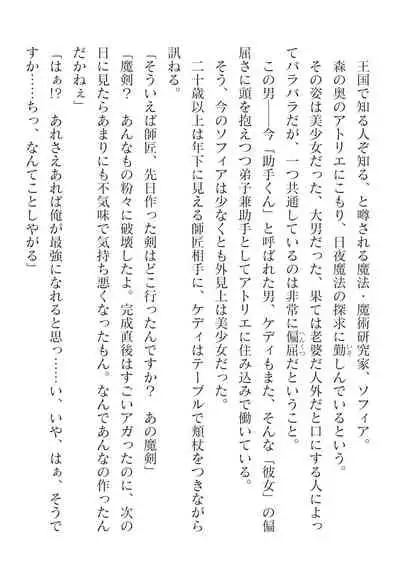 王国で知る人ぞ知る、と噂される魔法・魔術研究家、ソフィア。
森の奥のアトリエにこもり、日夜魔法の探求に勤しんでいるという。
その姿は美少女だった、大男だった、果ては老婆だ人外だと口にする人によっ
てバラバラだが、一つ共通しているのは非常に偏屈だということ。
この男――今「助手くん」と呼ばれた男、ケディもまた、そんな「彼女」の偏
屈さに頭を抱えつつ弟子兼助手としてアトリエに住み込みで働いている。
そう、今のソフィアは少なくとも外見上は美少女だった。
二十歳以上は年下に見える師匠相手に、ケディはテーブルで頬杖をつきながら
訊ねる。
「そういえば師匠、先日作った剣はどこ行ったんですか? あの魔剣」
「魔剣? あんなもの粉々に破壊したよ。完成直後はすごいアガったのに、次の
日に見たらあまりにも不気味で気持ち悪くなったもん。なんであんなの作ったん
だかねぇ」
「はぁ!? あれさえあれば俺が最強になれると思っ……い、いや、はぁ、そうで
すか……ちっ、なんてことしやがる」